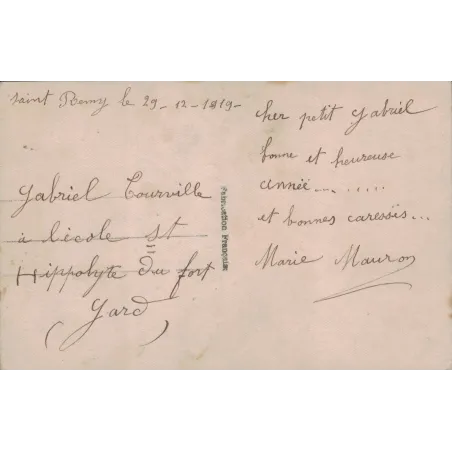 Saint Remy le 29-12-1919-
Gabriel Tourville
à lécole st
Hippolyte du fort
(Gard)
Fabrication Française
cher petit Gabriel
bonne et heureuse
année.........
et bonnes caressis...
Marie Mauron